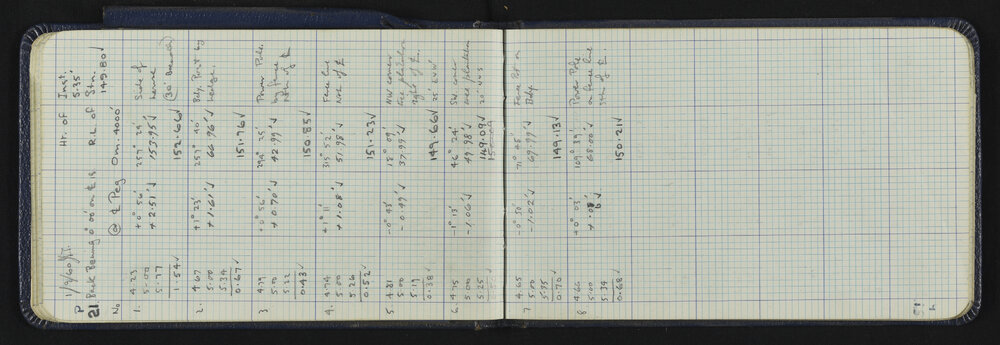 P
21.
1/9/60
Ht. of Inst.
5.35'
Back Bearing 0°00' on ₵ is R.L. of Stn.
149.80 ✓
No @ ₵ Peg 0m. 4000'
1. 4.23 +0° 56' 257° 34' Side of
5.00 + 2.51' ✓ 153.95' ✓ house
5.77 (30' Beyond)
1.54 ✓ 152.66 ✓
2. 4.67 +1° 23' 257° 40' Bdy. Post by
5.00 + 1.61' ✓ 66.96' ✓ hedge.
5.34
0.67 ✓ 151.76 ✓
3 4.79 +0° 56' 294° 25' Power Pole
5.00 + 0.70' ✓ 42.99' ✓ by fence
5.22 Nth of ₵
0.43 ✓ 150.85 ✓
4. 4.74 +1° 11' 315° 52' Fence line
5.00 + 1.08' ✓ 51.98' ✓ Nth of ₵
5.26
0.52 ✓ 151.23 ✓
5 4.81 -0° 45' 18° 09' NW corner
5.00 - 0.49' ✓ 37.99' ✓ tree plantation
5.19 right of ₵
0.38 ✓ 149.66 ✓
6. 4.75 -1° 13' 46° 24' SW corner
5.00 - 1.06' ✓ 49.98' ✓ tree plantation
5.25 149.09 ✓
7. 4.65 -0° 50' 71° 05' Fence Pot on
5.00 - 1.02' ✓ 69.99' ✓ Bdy.
5.35
0.70 ✓ 149.13 ✓
8. 4.66 +0° 03' 109° 39' Power Pole
5.00 68.00' ✓ on fence line
5.34 Sth of ₵.
0.68 ✓ 150.21 ✓